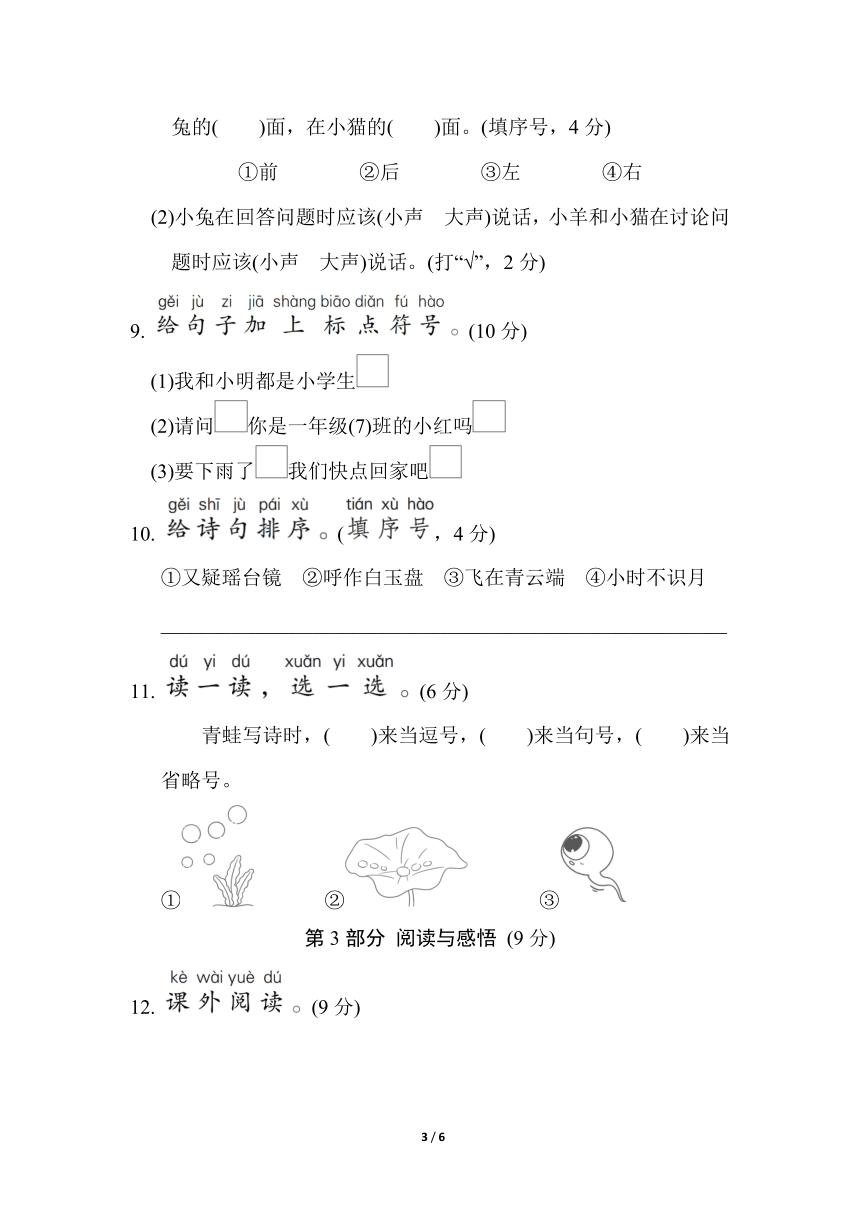 兔的(　　)面，在小猫的(　　)面。(填序号，4 分)
①前　　②后　　③左　　④右
(2)小兔在回答问题时应该(小声　大声)说话，小羊和小猫在讨论问
题时应该(小声　大声)说话。(打“√”，2 分)
gěi jù zi jiā shàng biāo diǎn fú hào
9. 给句子加上标点符号。(10 分)
(1)我和小明都是小学生□
(2)请问□你是一年级(7)班的小红吗□
(3)要下雨了□我们快点回家吧□
gěi shī jù pái xù tián xù hào
10. 给诗句排序。(填序号，4 分)
①又疑瑶台镜　②呼作白玉盘　③飞在青云端　④小时不识月
dú yi dú xuǎn yi xuǎn
11. 读一读，选一选。(6 分)
青蛙写诗时，(　　)来当逗号，(　　)来当句号，(　　)来当
省略号。
①　　②　　③
第 3 部分 阅读与感悟 (9 分)
kè wài yuè dú
12. 课外阅读。(9 分)
3 / 6